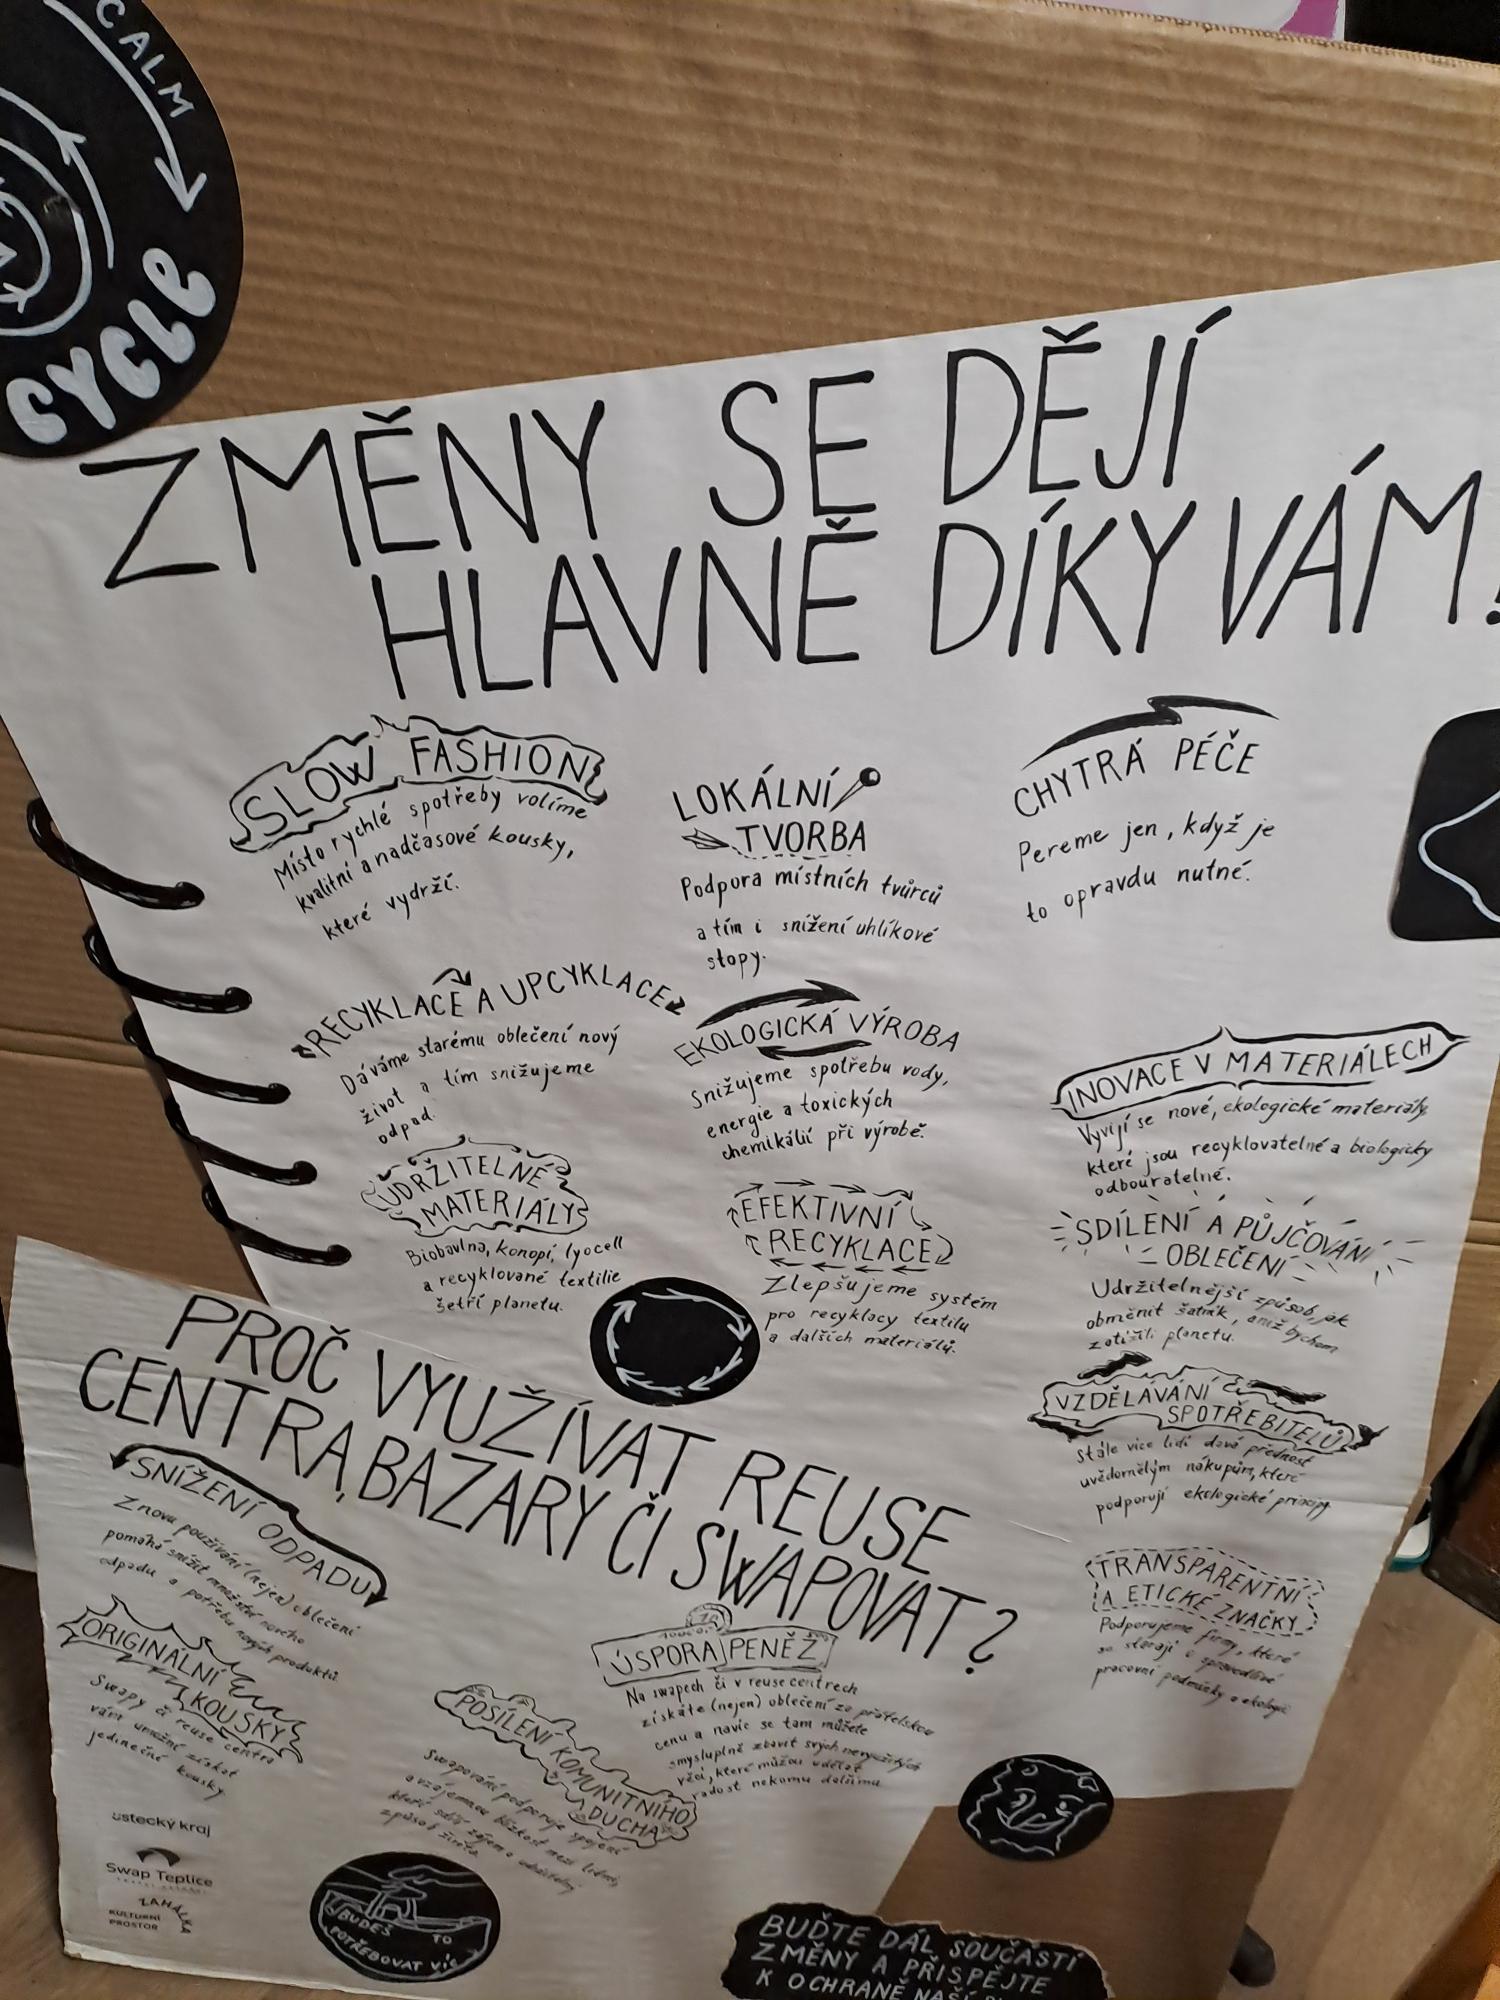 CALM
CYCLE
ZMĚNY SE DĚJÍ
HLAVNĚ DÍKY VÁM!
SLOW FASHION
Místo rychlé spotřeby volíme
kvalitní a nadčasové kousky,
které vydrží.
LOKÁLNÍ
TVORBA
Podpora místních tvůrců
a tím i snížení uhlíkové
stopy.
CHYTRÁ PÉČE
Pereme jen, když je
to opravdu nutné.
RECYKLACE A UPCYKLACE
Dáváme starému oblečení nový
život a tím snižujeme
odpad.
EKOLOGICKÁ VÝROBA
Snižujeme spotřebu vody,
energie a toxických
chemikálií při výrobě.
INOVACE V MATERIÁLECH
Vyvíjí se nové, ekologické materiály,
které jsou recyklovatelné a biologicky
odbouratelné.
UDRŽITELNÉ
MATERIÁLY
Biobavlna, konopí, lyocell
a recyklované textilie
šetří planetu.
EFEKTIVNÍ
RECYKLACE
Zlepšujeme systém
pro recyklacy textilu
a dalších materiálů.
SDÍLENÍ A PŮJČOVÁNÍ
OBLEČENÍ
Udržitelnější způsob, jak
obměnit šatník, aniž bychom
zatížili planetu.
VZDĚLÁVÁNÍ
SPOTŘEBITELŮ
Stále více lidí dává přednost
uvědomělým nákupům, které
podporují ekologické principy
TRANSPARENTNÍ
A ETICKÉ ZNAČKY
Podporujeme firmy, které
se starají o spravedlivé
pracovní podmínky a ekologii
PROČ VYUŽÍVAT REUSE
CENTRA, BAZARY ČI SWAPOVAT?
SNÍŽENÍ ODPADU
Znovu používání (nejen) oblečení
pomáhá snížit množství nového
odpadu a potřebu nových produktů.
ORIGINÁLNÍ
KOUSKY
Swapy či reuse centra
vám umožní získat
jedinečné kousky
ÚSPORA PENĚZ
Na swapech či v reuse centrech
získáte (nejen) oblečení za přátelskou
cenu a navíc se tam můžete
smysluplně zbavit svých nevyužitých
věcí, které můžou udělat
radost nekomu dalšímu
POSÍLENÍ KOMUNITNÍHO
DUCHA
Swapování podporuje spojení
a vzájemnou blízkost mezi lidmi,
kteří sdílí zájem o udržitelný
způsob života.
ústecký kraj
Swap Teplice
ZAHÁLKA
KULTURNÍ
PROSTOR
BUDEŠ TO
POTŘEBOVAT VÍC
BUĎTE DÁL SOUČÁSTÍ
ZMĚNY A PŘISPĚJTE
K OCHRANĚ NAŠÍ